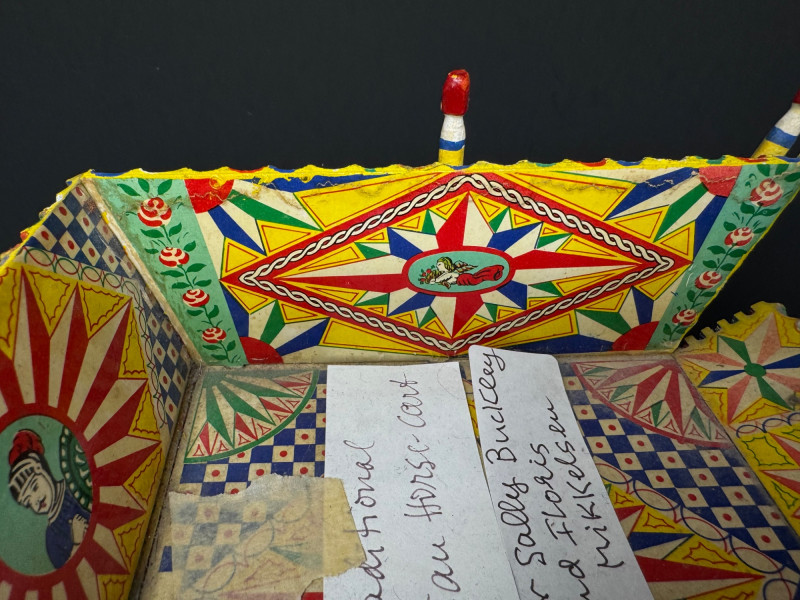 aditional
an Horse-cart
Sally Buckley
nd Floris
Mikkelsen